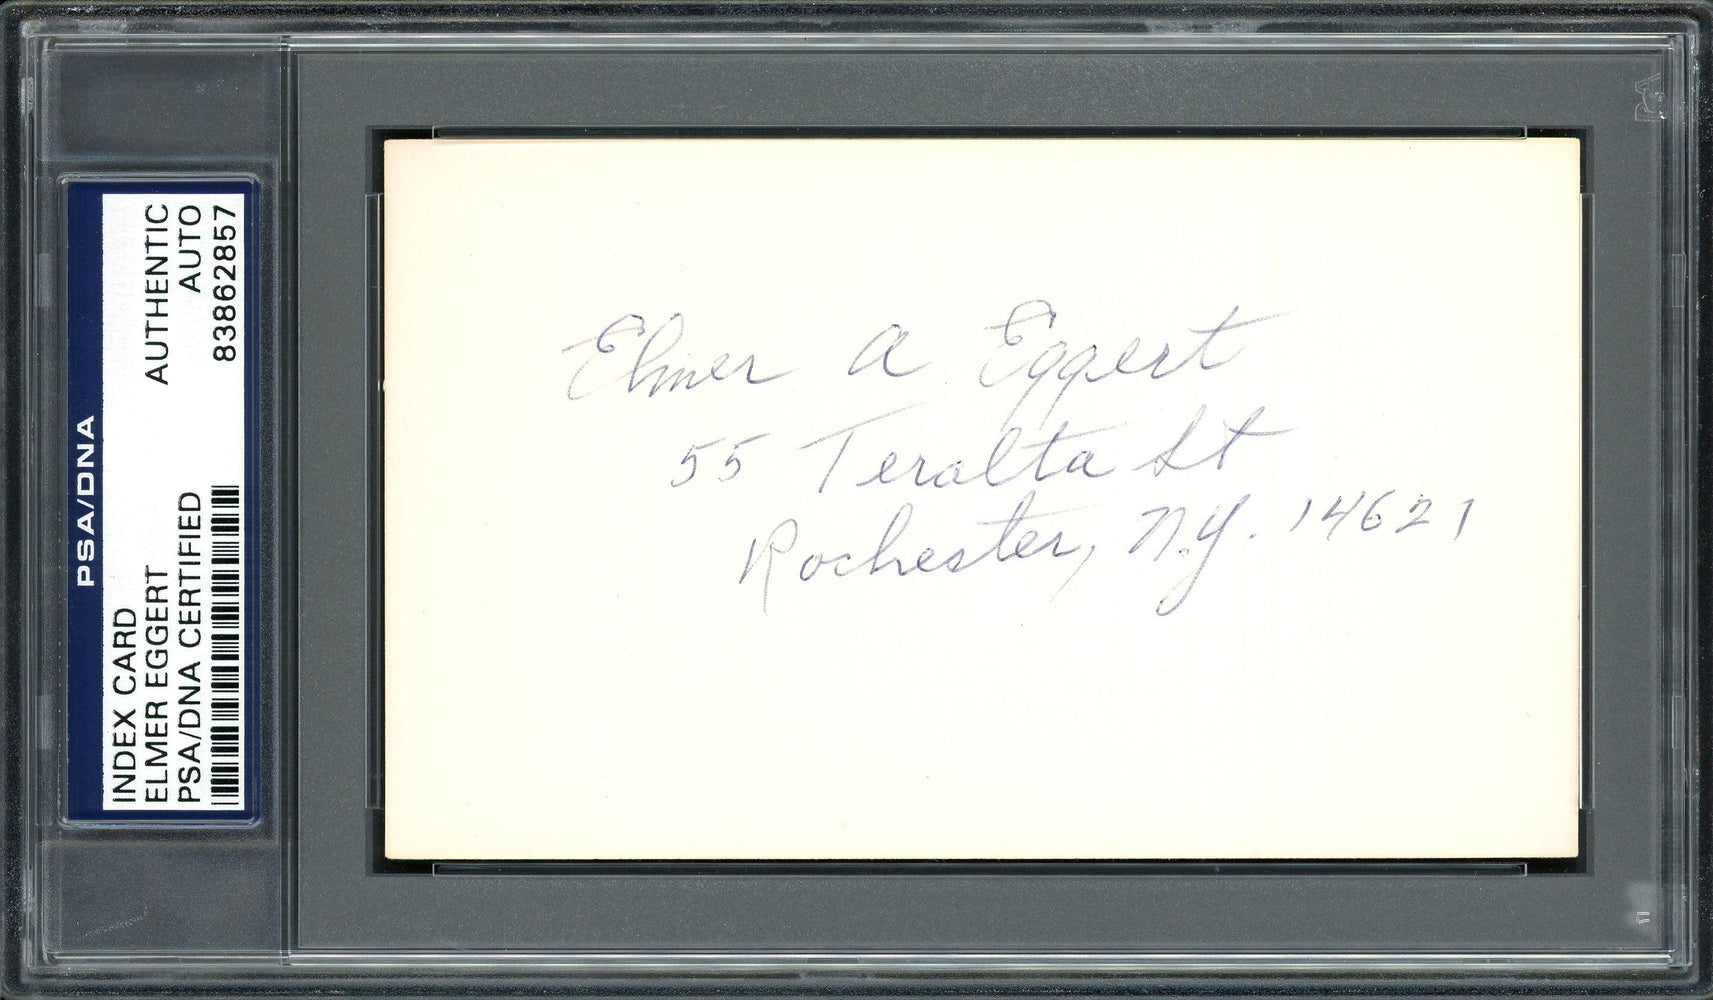 PSA/DNA
INDEX CARD AUTHENTIC
ELMER EGGERT AUTO
PSA/DNA CERTIFIED 83862857
Elmer A Eggert
55 Teralta St
Rochester, N.Y. 14621
PSA